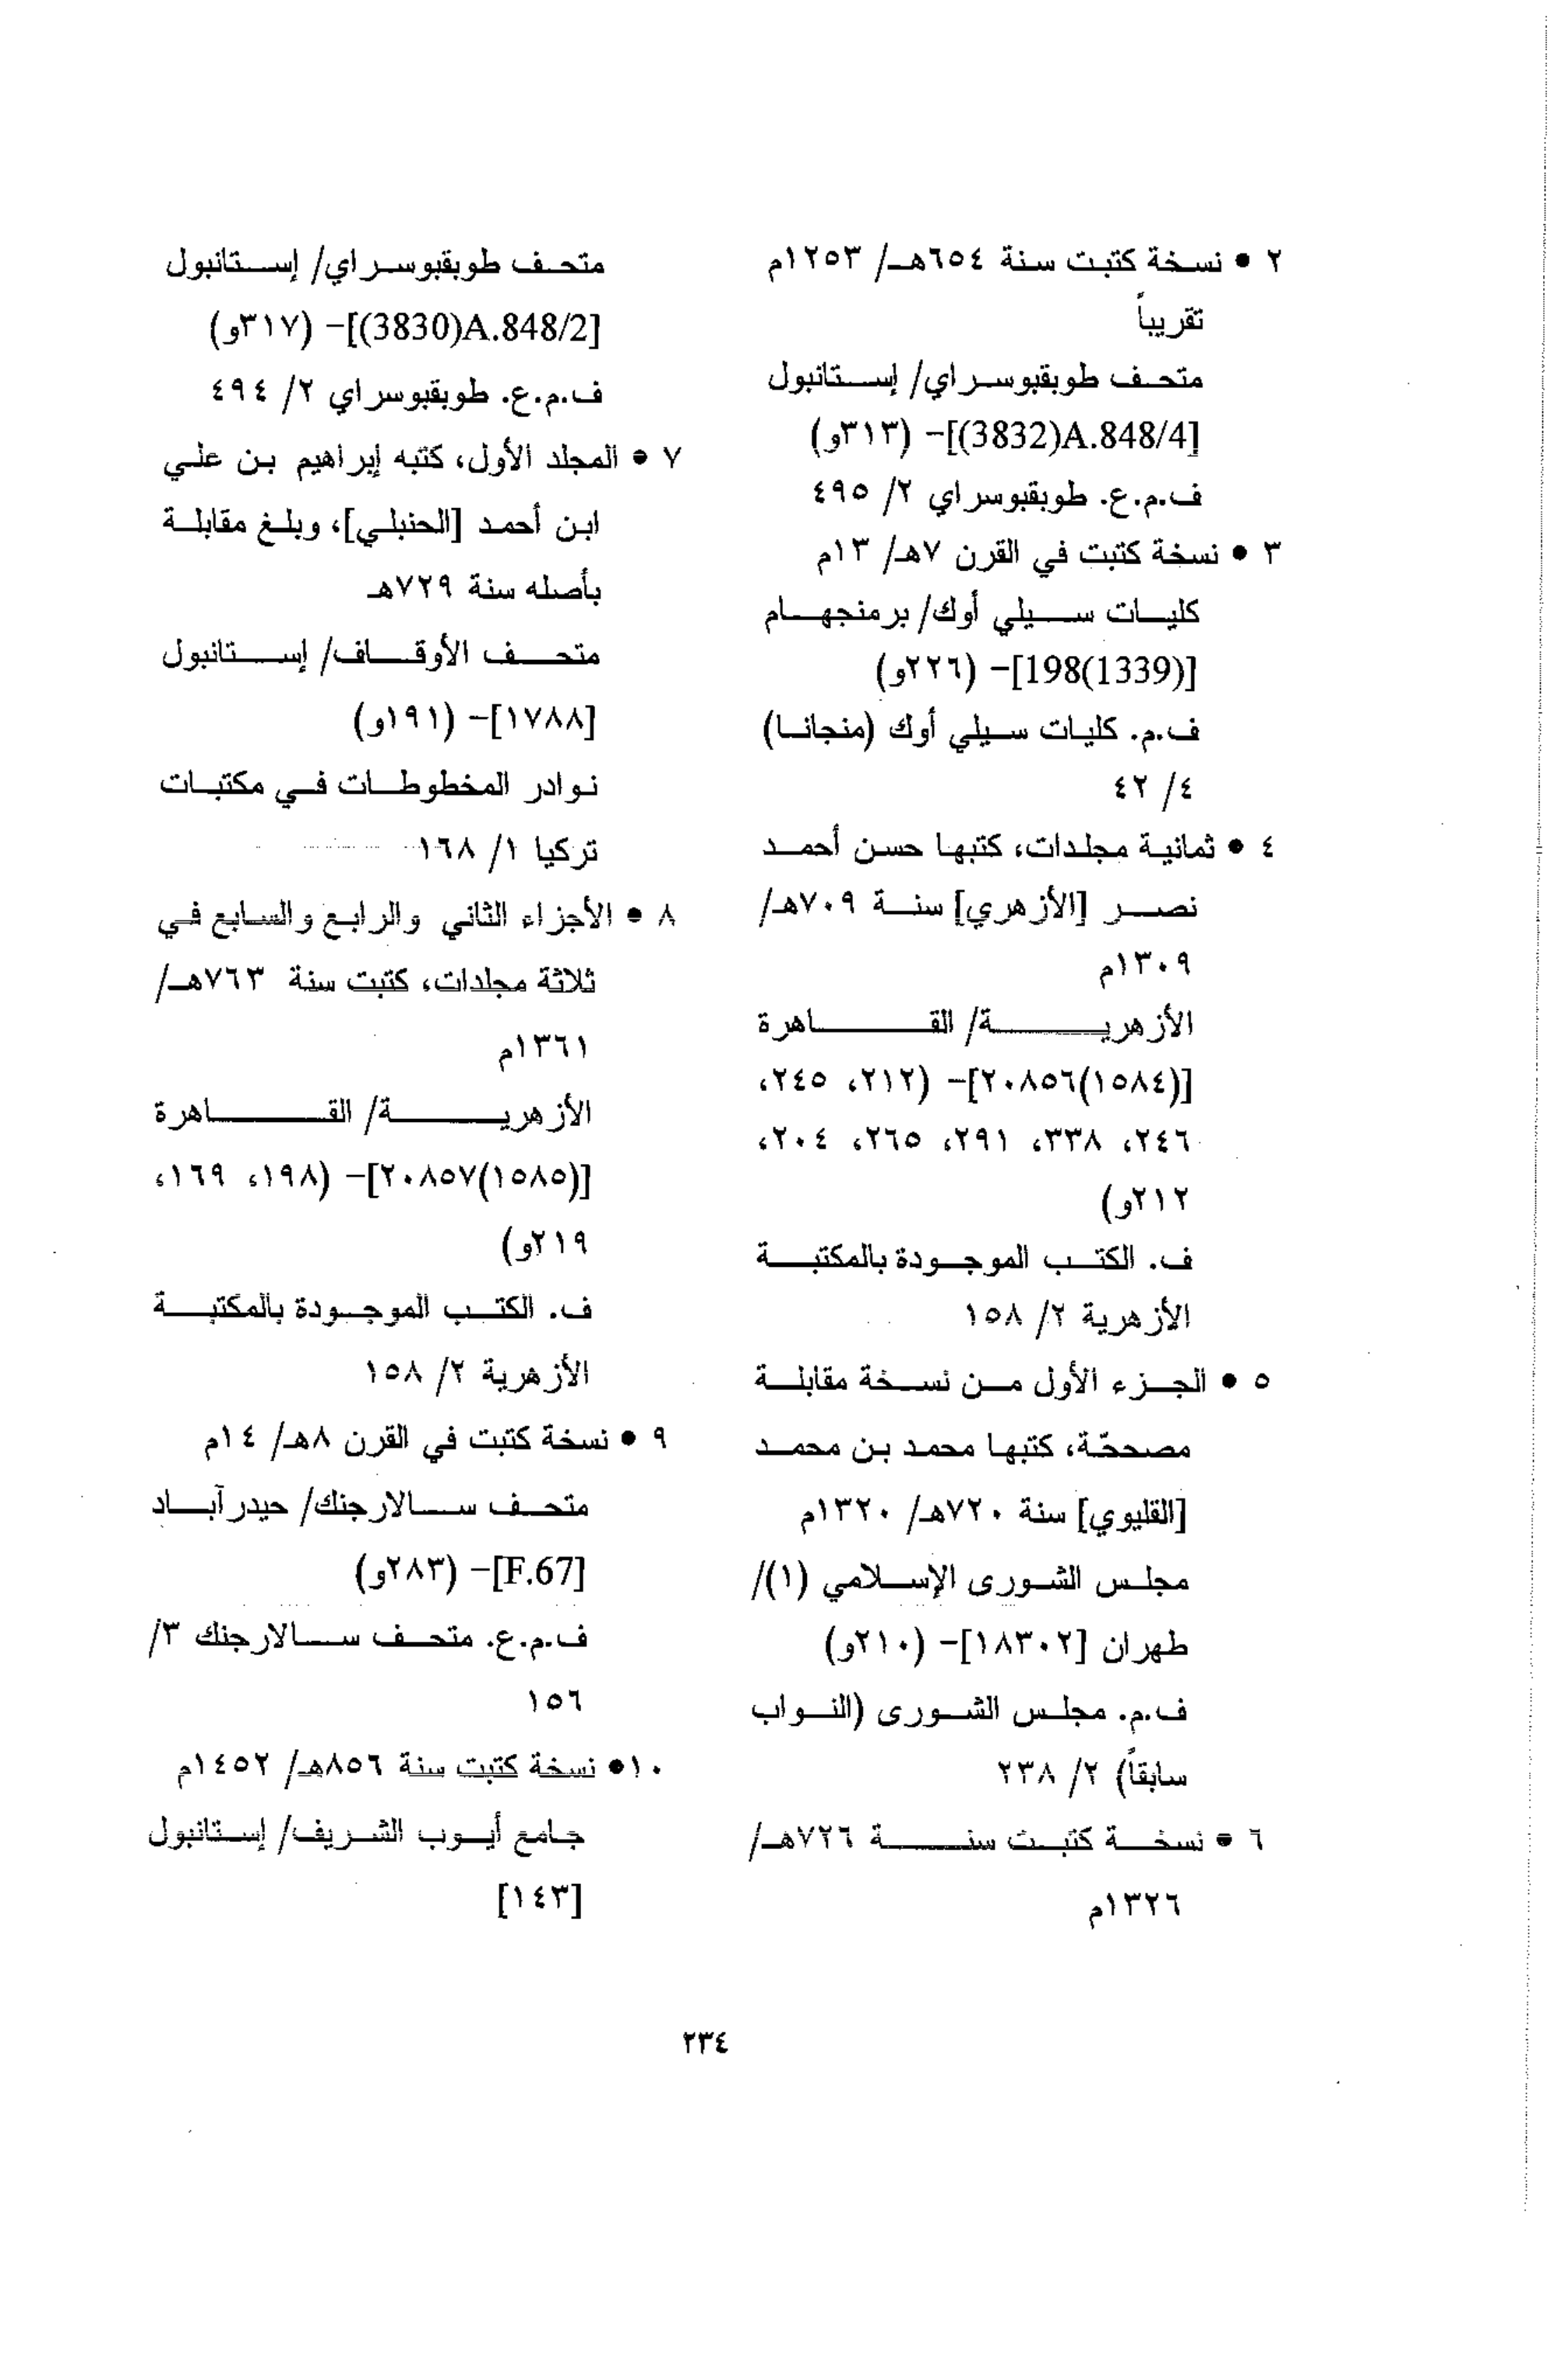 ٢ • نسخة كتبت سنة ٦٥٤هـ/ ١٢٥٣م
تقريباً
متحف طوبقبوسراي/ إستانبول
[A.848/4(3832)]- (٣١٣و)
ف.م.ع. طوبقبوسراي ٢/ ٤٩٥
٣ • نسخة كتبت في القرن ٧هـ/ ١٣م
كليات سيلي أوك/ برمنجهام
[198(1339)]- (٢٢٦و)
ف.م. كليات سيلي أوك (منجانا)
٤/ ٤٢
٤ • ثمانية مجلدات، كتبها حسن أحمد
نصر [الأزهري] سنة ٧٠٩هـ/
١٣٠٩م
الأزهرية/ القاهرة
[(١٥٨٤)٢٠٨٥٦]- (٢١٢، ٢٤٥،
٢٤٦، ٣٣٨، ٢٩١، ٢٦٥، ٢٠٤،
٢١٢و)
ف. الكتب الموجودة بالمكتبة
الأزهرية ٢/ ١٥٨
٥ • الجزء الأول من نسخة مقابلة
مصححّة، كتبها محمد بن محمد
[القليوي] سنة ٧٢٠هـ/ ١٣٢٠م
مجلس الشورى الإسلامي (١)/
طهران [١٨٣٠٢]- (٢١٠و)
ف.م. مجلس الشورى (النواب
سابقاً) ٢/ ٢٣٨
٦ • نسخة كتبت سنة ٧٢٦هـ/
١٣٢٦م
متحف طوبقبوسراي/ إستانبول
[A.848/2(3830)]- (٣١٧و)
ف.م.ع. طوبقبوسراي ٢/ ٤٩٤
٧ • المجلد الأول، كتبه إبراهيم بن علي
ابن أحمد [الحنبلي]، وبلغ مقابلة
بأصله سنة ٧٢٩هـ
متحف الأوقاف/ إستانبول
[١٧٨٨]- (١٩١و)
نوادر المخطوطات في مكتبات
تركيا ١/ ١٦٨
٨ • الأجزاء الثاني والرابع والسابع في
ثلاثة مجلدات، كتبت سنة ٧٦٣هـ/
١٣٦١م
الأزهرية/ القاهرة
[(١٥٨٥)٢٠٨٥٧]- (١٩٨، ١٦٩،
٢١٩و)
ف. الكتب الموجودة بالمكتبة
الأزهرية ٢/ ١٥٨
٩ • نسخة كتبت في القرن ٨هـ/ ١٤م
متحف سالارجنك/ حيدرآباد
[F.67]- (٢٨٣و)
ف.م.ع. متحف سالارجنك ٣/
١٥٦
١٠• نسخة كتبت سنة ٨٥٦هـ/ ١٤٥٢م
جامع أيوب الشريف/ إستانبول
[١٤٣]
٢٣٤